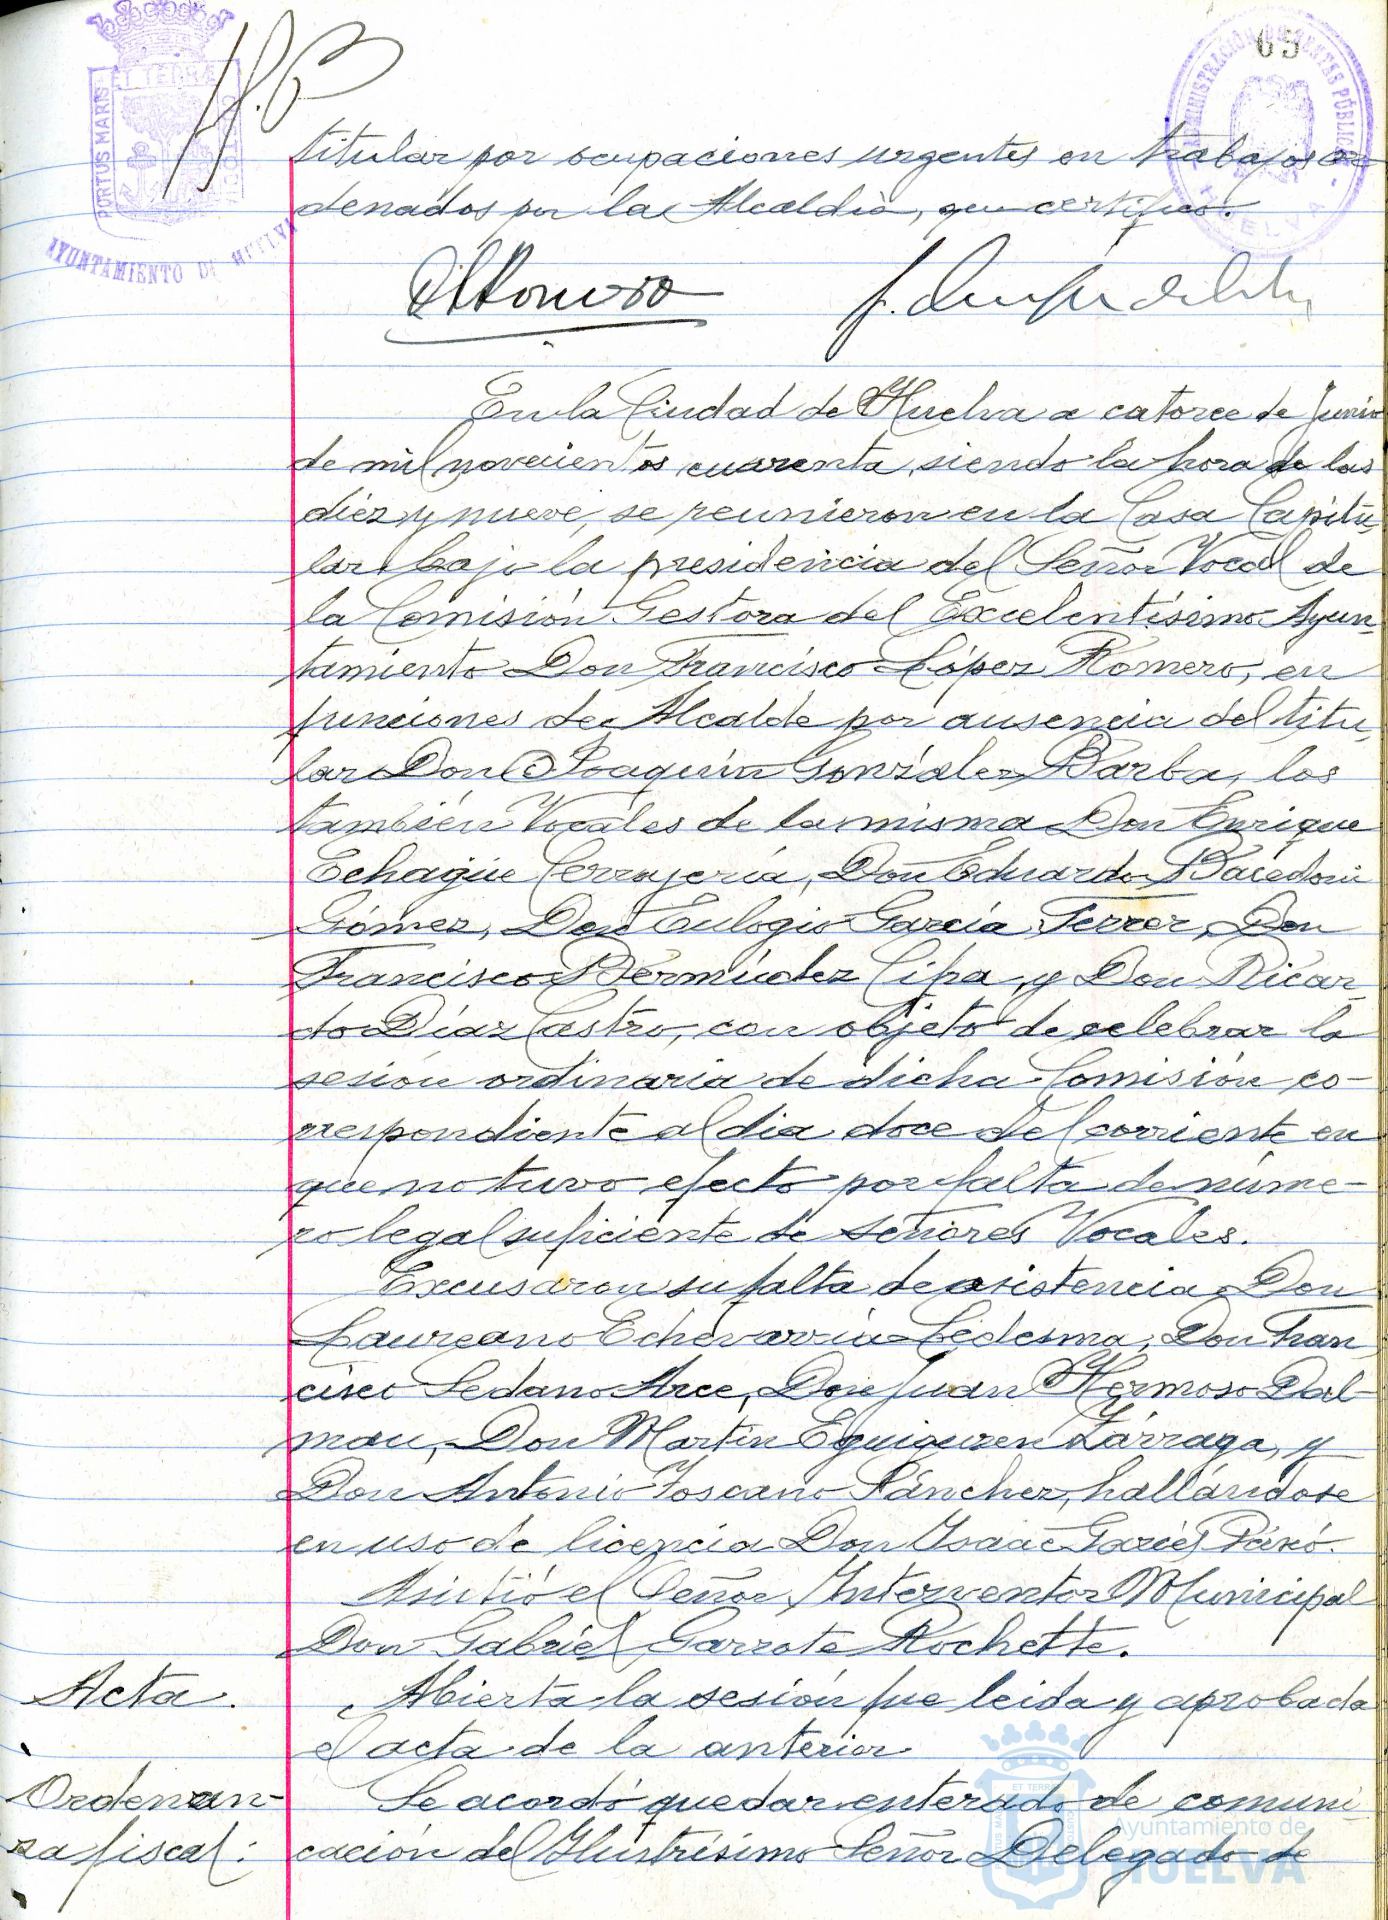 65
PORTUS MARIS ET TERRAE CUSTODIA
AYUNTAMIENTO DE HUELVA
ADMINISTRACIÓN DE RENTAS PÚBLICAS
- HUELVA -
titular por ocupaciones urgentes en trabajos or-
denados por la Alcaldía, que certifico.
En la Ciudad de Huelva a catorce de Junio
de mil novecientos cuarenta, siendo la hora de las
diez y nueve, se reunieron en la Casa Capitu-
lar bajo la presidencia del Señor Vocal de
la Comisión Gestora del Excelentísimo Ayun-
tamiento Don Francisco López Romero, en
funciones de Alcalde por ausencia del titu-
lar Don Joaquín González Barba, los
también Vocales de la misma Don Enrique
Echagüe Cerrajería, Don Eduardo Bacedoni
Gómez, Don Eulogio García Ferrer, Don
Francisco Bermúdez Cipa, y Don Ricar-
do Díaz Castro, con objeto de celebrar la
sesión ordinaria de dicha Comisión co-
rrespondiente al dia doce del corriente en
que no tuvo efecto por falta de núme-
ro legal suficiente de señores Vocales.
Excusaron su falta de asistencia Don
Laureano Echevarría Ledesma, Don Fran-
cisco Sedano Arce, Don Juan Hermoso Dal-
mau, Don Martín Eguiguren Zárraga, y
Don Antonio Toscano Sánchez, hallándose
en uso de licencia Don Isaac
Asistió el Señor Interventor Municipal
Don Gabriel Garrote Rochette.
Acta.
Abierta la sesión fue leida y aprobada
el acta de la anterior
Ordenan-
za fiscal:
Se acordó quedar enterado de comuni
cación del Ilustrísimo Señor Delegado de
Ayuntamiento de
HUELVA